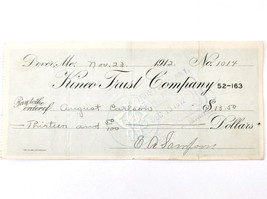 Dover, Me. Nov. 23 1912 No. 1014
Kineo Trust Company 52-163
Pay to the order of August Carlson $13.50
Thirteen and 50/100 Dollars